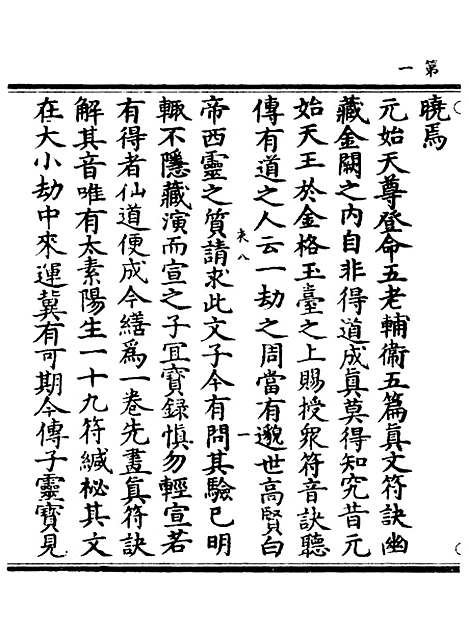 第一
曉焉
元始天尊登命五老輔衞五篇眞文符訣幽
藏金闕之內自非得道成眞莫得知究昔元
始天王於金格玉臺之上賜授衆符音訣聽
傳有道之人云一劫之周當有邈世高賢白
夾八
一
帝西靈之質請求此文子今有問其驗已明
輒不隱藏演而宣之子冝寶錄慎勿輕宣若
有得者仙道便成今繕爲一卷先畫眞符訣
解其音唯有太素陽生一十九符緘祕其文
在大小劫中來運冀有可期今傳子靈寶見